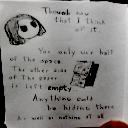 Though now
that I think
of it
You only use half
of the space
The other side
of the paper
is left empty
Anything could
be hiding there
As well as nothing at all